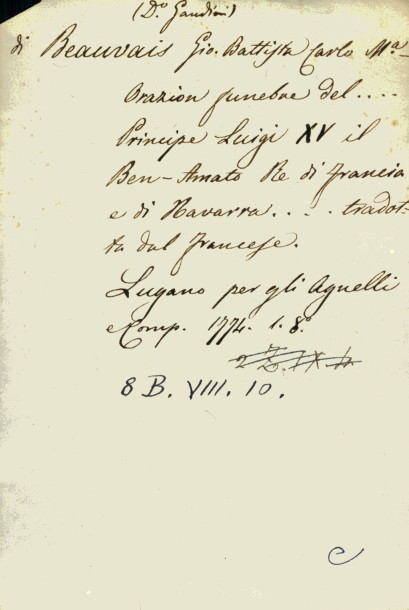 (D.º Gaudini)
di Beauvais Gio. Battista Carlo Mª
Orazion funebre del ....
Principe Luigi XV il
Ben-Amato Re di Francia
e di Navarra .... tradot-
ta dal francese.
Lugano per gli Agnelli
e Comp. 1774. 1. 8.º
8 B. VIII. 10.
C